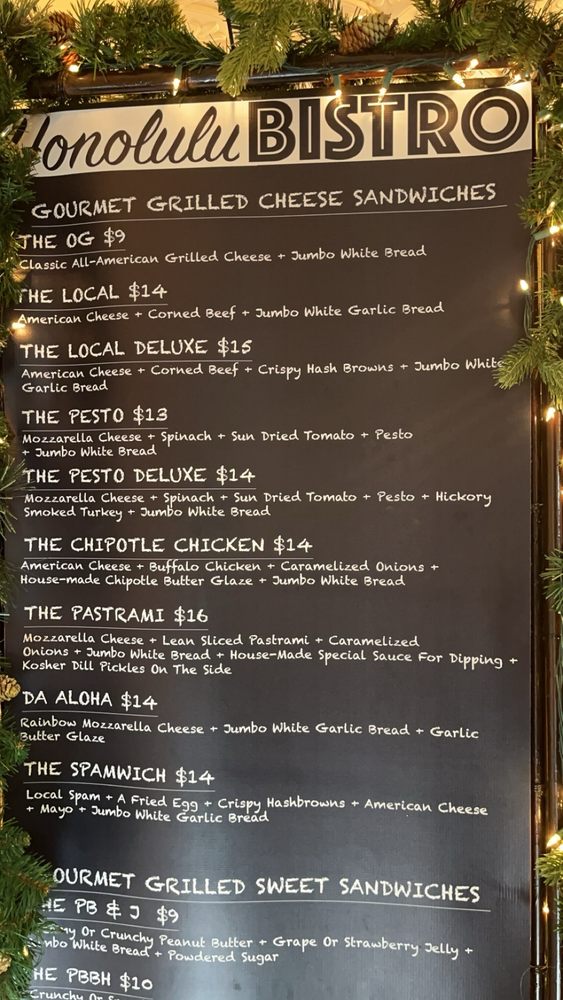 Honolulu BISTRO
GOURMET GRILLED CHEESE SANDWICHES
THE OG $9
Classic All-American Grilled Cheese + Jumbo White Bread
THE LOCAL $14
American Cheese + Corned Beef + Jumbo White Garlic Bread
THE LOCAL DELUXE $15
American Cheese + Corned Beef + Crispy Hash Browns + Jumbo White
Garlic Bread
THE PESTO $13
Mozzarella Cheese + Spinach + Sun Dried Tomato + Pesto
+ Jumbo White Bread
THE PESTO DELUXE $14
Mozzarella Cheese + Spinach + Sun Dried Tomato + Pesto + Hickory
Smoked Turkey + Jumbo White Bread
THE CHIPOTLE CHICKEN $14
American Cheese + Buffalo Chicken + Caramelized Onions +
House-made Chipotle Butter Glaze + Jumbo White Bread
THE PASTRAMI $16
Mozzarella Cheese + Lean Sliced Pastrami + Caramelized
Onions + Jumbo White Bread + House-Made Special Sauce For Dipping +
Kosher Dill Pickles On The Side
DA ALOHA $14
Rainbow Mozzarella Cheese + Jumbo White Garlic Bread + Garlic
Butter Glaze
THE SPAMWICH $14
Local Spam + A Fried Egg + Crispy Hashbrowns + American Cheese
+ Mayo + Jumbo White Garlic Bread
GOURMET GRILLED SWEET SANDWICHES
THE PB & J $9
Or Crunchy Peanut Butter + Grape Or Strawberry Jelly +
Jumbo White Bread + Powdered Sugar
THE PBBH $10
Crunchy Or